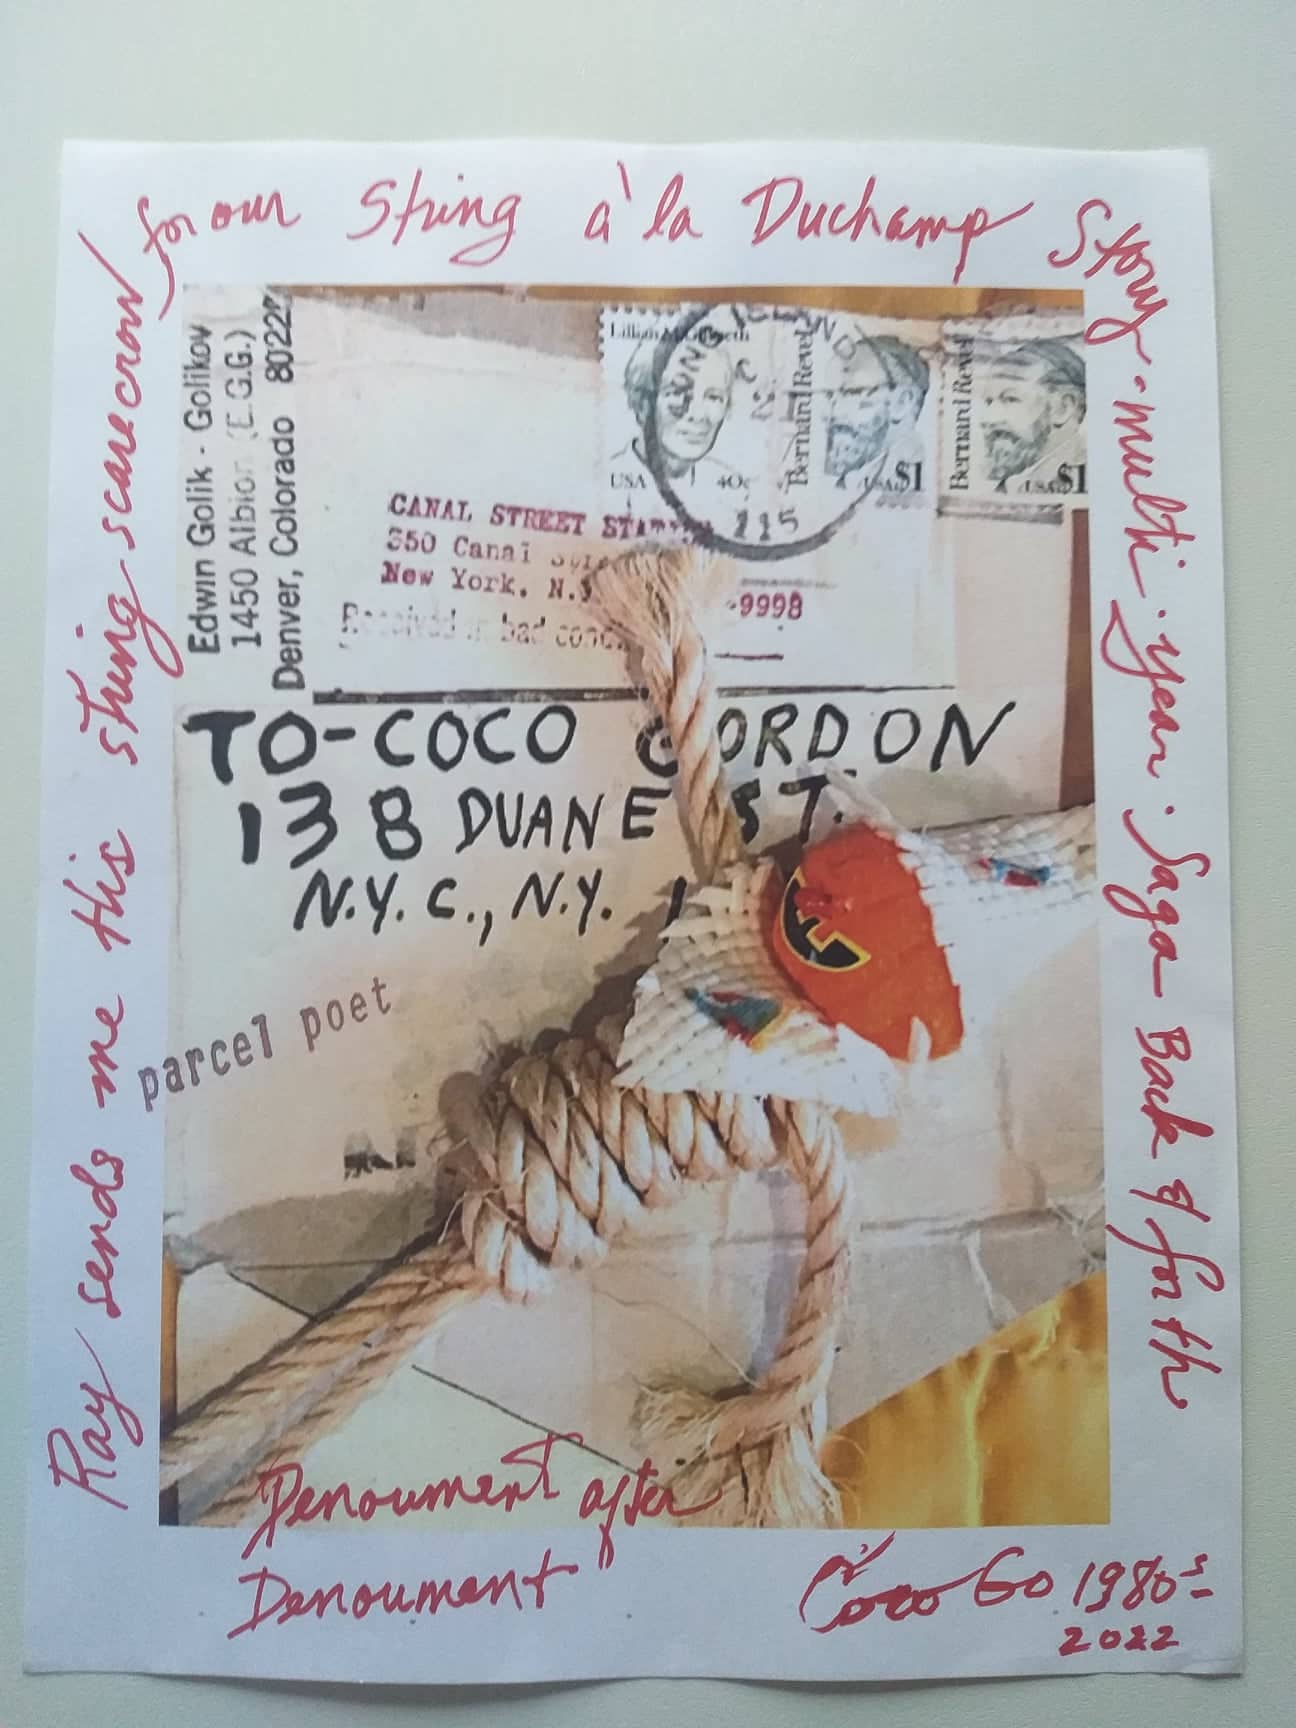 Ray sends me this string scarecrow for our String à la Duchamp Story - multi-year. Saga Back & forth
Edwin Golik - Golikov
1450 Albion (E.G.G.)
Denver, Colorado 8022
Lillian M. Gilbreth
USA 40c
Bernard Revel
USA $1
Bernard Revel
USA $1
JUN
115
CANAL STREET STATION
350 Canal
New York, N.Y
-9998
Received in bad cond.
TO-COCO GORDON
138 DUANE ST.
N.Y.C., N.Y. 1
parcel poet
Denoument after
Denoument
Coco Go 1980s-
2022